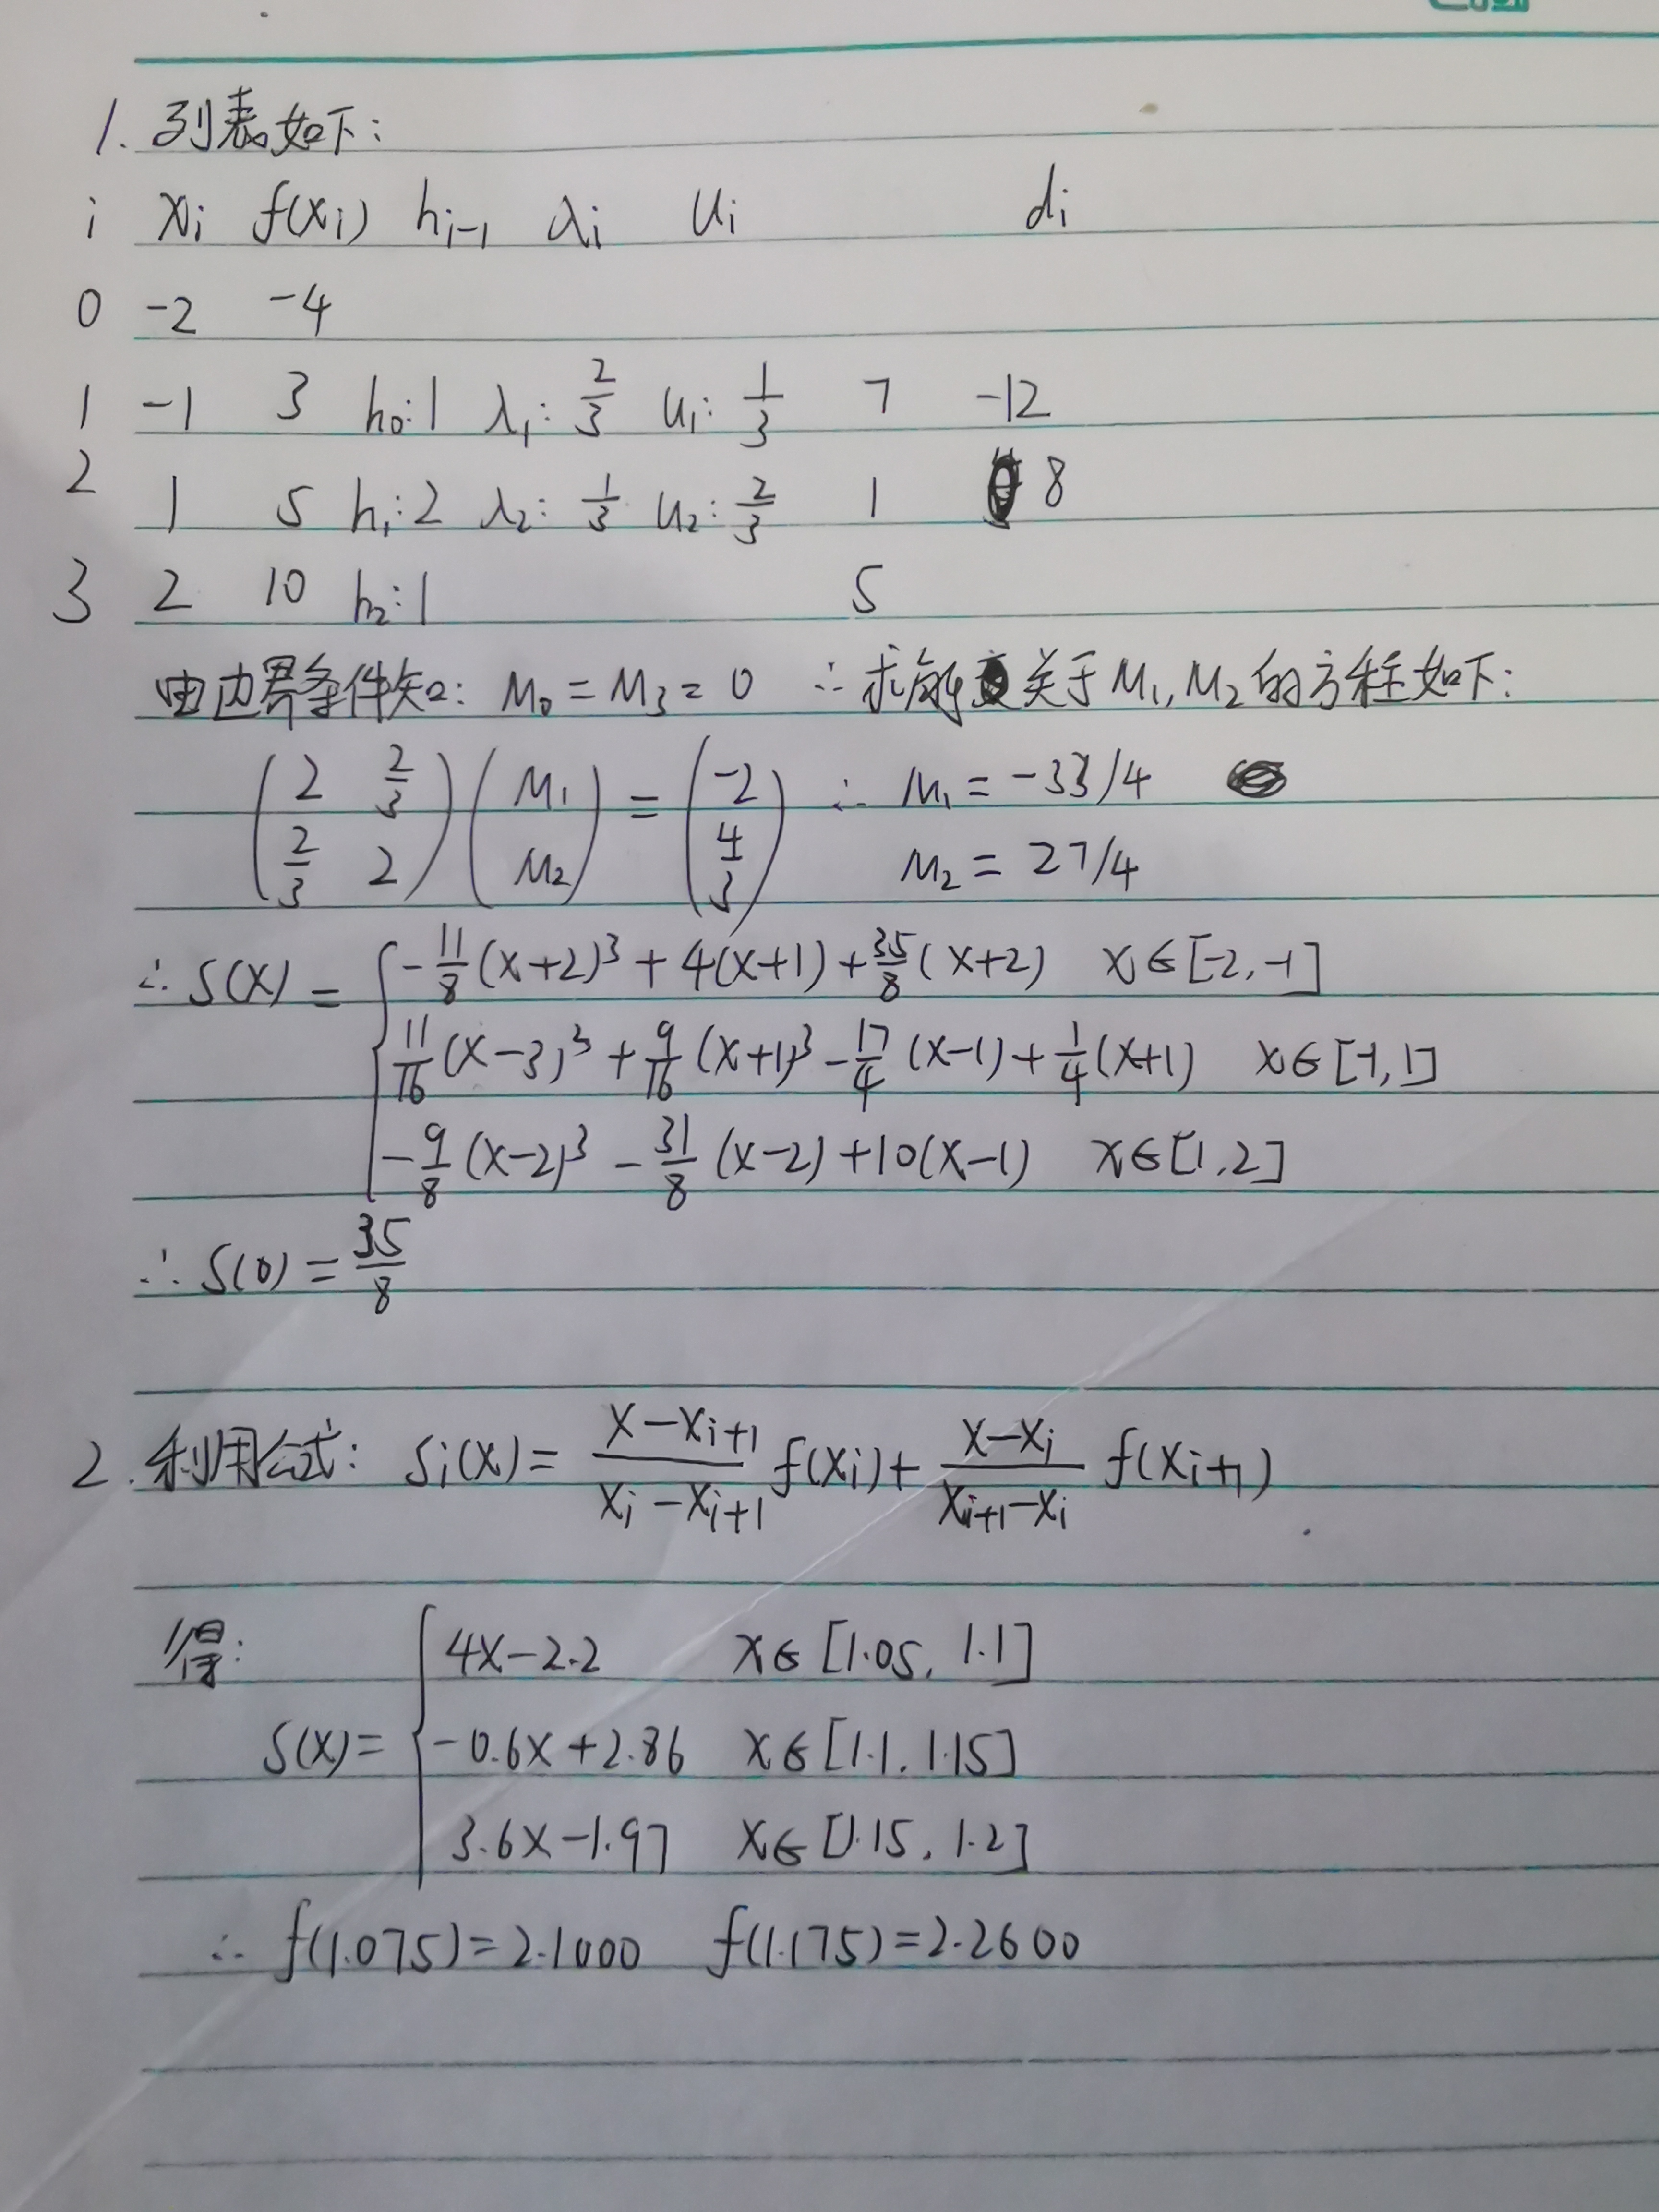 1. 列表如下:
i xi f(xi) hi-1 λi ui di
0 -2 -4
1 -1 3 h0:1 λ1: 2/3 u1: 1/3 7 -12
2 1 5 h1:2 λ2: 1/3 u2: 2/3 1 8
3 2 10 h2:1 5
由边界条件知: M0 = M3 = 0 ∴ 求解 关于M1, M2的方程如下:
(2 2/3; 2/3 2)(M1; M2) = (-2; 4/3) ∴ M1 = -33/4
M2 = 27/4
∴ S(x) = { -11/8 (x+2)³ + 4(x+1) + 35/8 (x+2) x∈[-2, -1]
11/16 (x-3)³ + 9/16 (x+1)³ - 17/4 (x-1) + 1/4 (x+1) x∈[-1, 1]
-9/8 (x-2)³ - 31/8 (x-2) + 10(x-1) x∈[1, 2]
∴ S(0) = 35/8
2. 利用公式: Si(x) = (x-xi+1)/(xi-xi+1) f(xi) + (x-xi)/(xi+1-xi) f(xi+1)
得: { 4x-2.2 x∈[1.05, 1.1]
S(x) = -0.6x+2.86 x∈[1.1, 1.15]
3.6x-1.97 x∈[1.15, 1.2]
∴ f(1.075)=2.1000 f(1.175)=2.2600